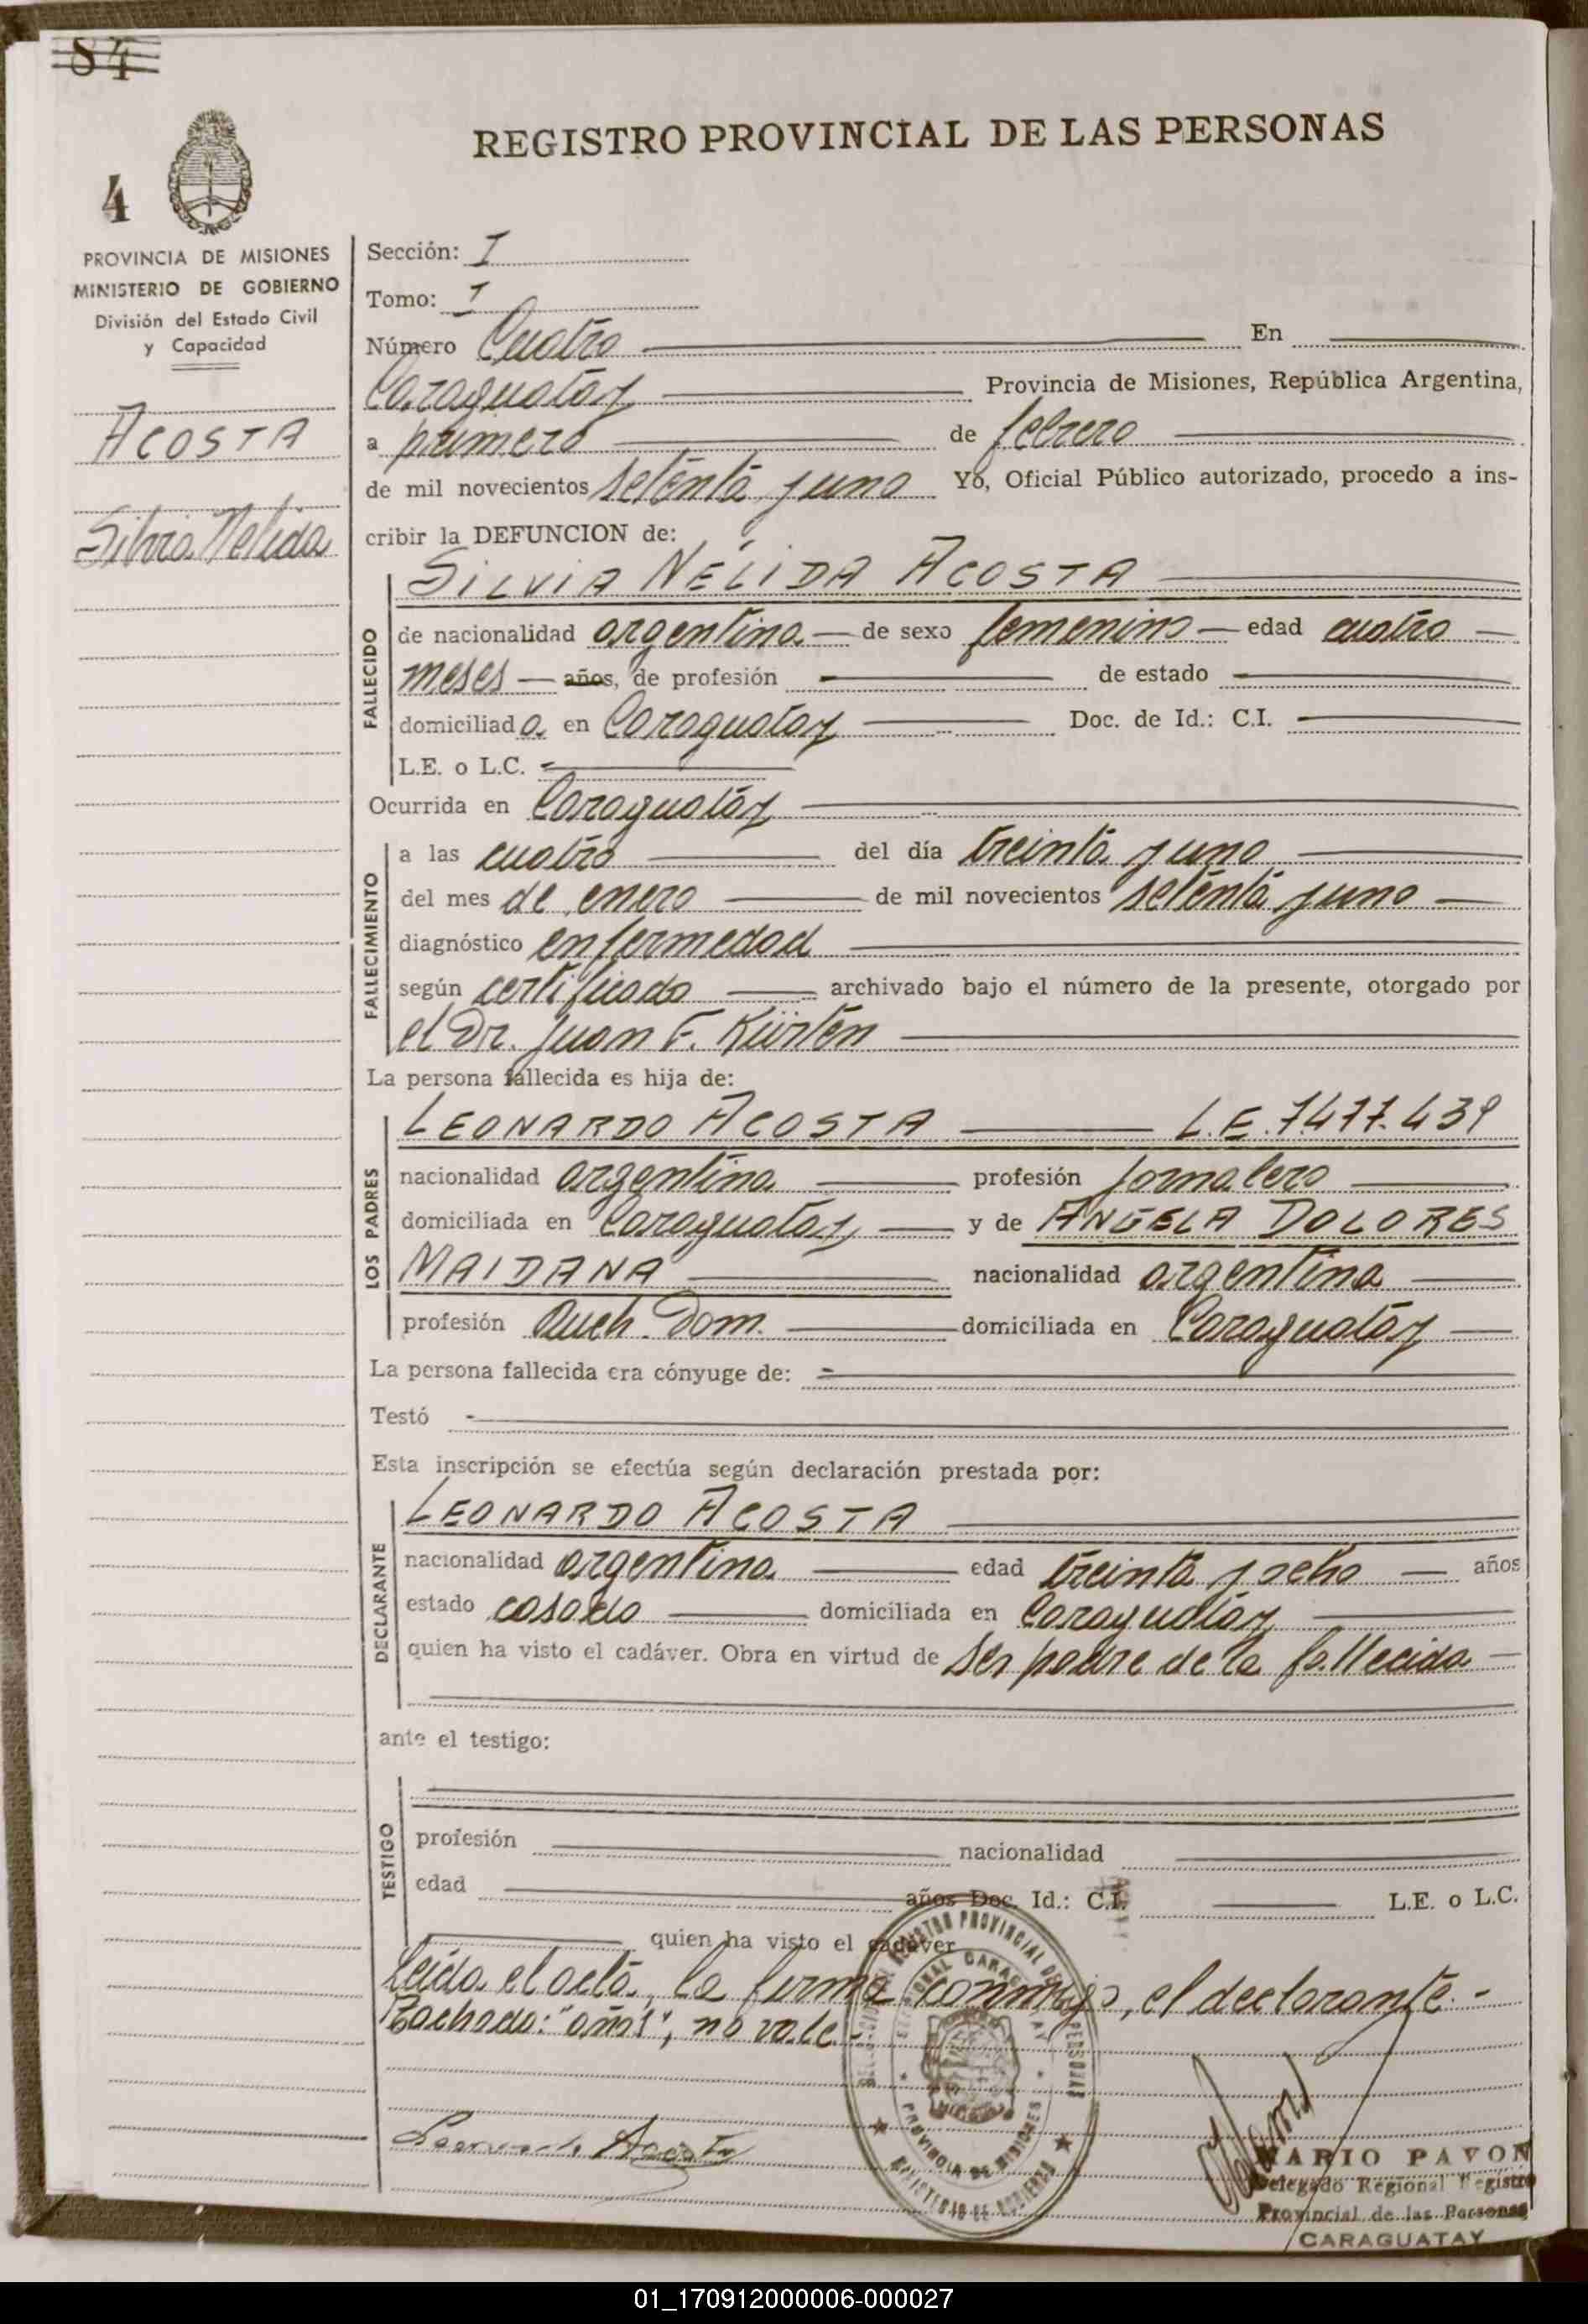 84
REGISTRO PROVINCIAL DE LAS PERSONAS
4
PROVINCIA DE MISIONES
MINISTERIO DE GOBIERNO
División del Estado Civil
y Capacidad
ACOSTA
Silvia Nelida
Sección: I
Tomo: I
Número Cuatro En
Caraguatay Provincia de Misiones, República Argentina,
a primero de febrero
de mil novecientos setenta y uno Yo, Oficial Público autorizado, procedo a ins-
cribir la DEFUNCION de:
SILVIA NÉLIDA ACOSTA
FALLECIDO
de nacionalidad argentina de sexo femenino edad cuatro
meses años, de profesión de estado
domiciliada en Caraguatay Doc. de Id.: C.I.
L.E. o L.C.
Ocurrida en Caraguatay
FALLECIMIENTO
a las cuatro del día treinta y uno
del mes de enero de mil novecientos setenta y uno
diagnóstico enfermedad
según certificado archivado bajo el número de la presente, otorgado por
el Dr. Juan F. Kürten
La persona fallecida es hija de:
LOS PADRES
LEONARDO ACOSTA L.E. 7.477.439
nacionalidad argentina profesión jornalero
domiciliada en Caraguatay y de ANGELA DOLORES
MAIDANA nacionalidad argentina
profesión Queh. Dom. domiciliada en Caraguatay
La persona fallecida era cónyuge de:
Testó
Esta inscripción se efectúa según declaración prestada por:
DECLARANTE
LEONARDO ACOSTA
nacionalidad argentina edad treinta y ocho años
estado casado domiciliada en Caraguatay
quien ha visto el cadáver. Obra en virtud de ser padre de la fallecida
ante el testigo:
TESTIGO
profesión nacionalidad
edad años Doc. Id.: C.I. L.E. o L.C.
quien ha visto el cadáver
Leída el acta, la firma conmigo, el declarante.-
Tachado: "años", no vale.-
PROVINCIA DE MISIONES
MINISTERIO DE GOBIERNO
Leonardo Acosta
MARIO PAVON
Delegado Regional Registro
Provincial de las Personas
CARAGUATAY
01_170912000006-000027